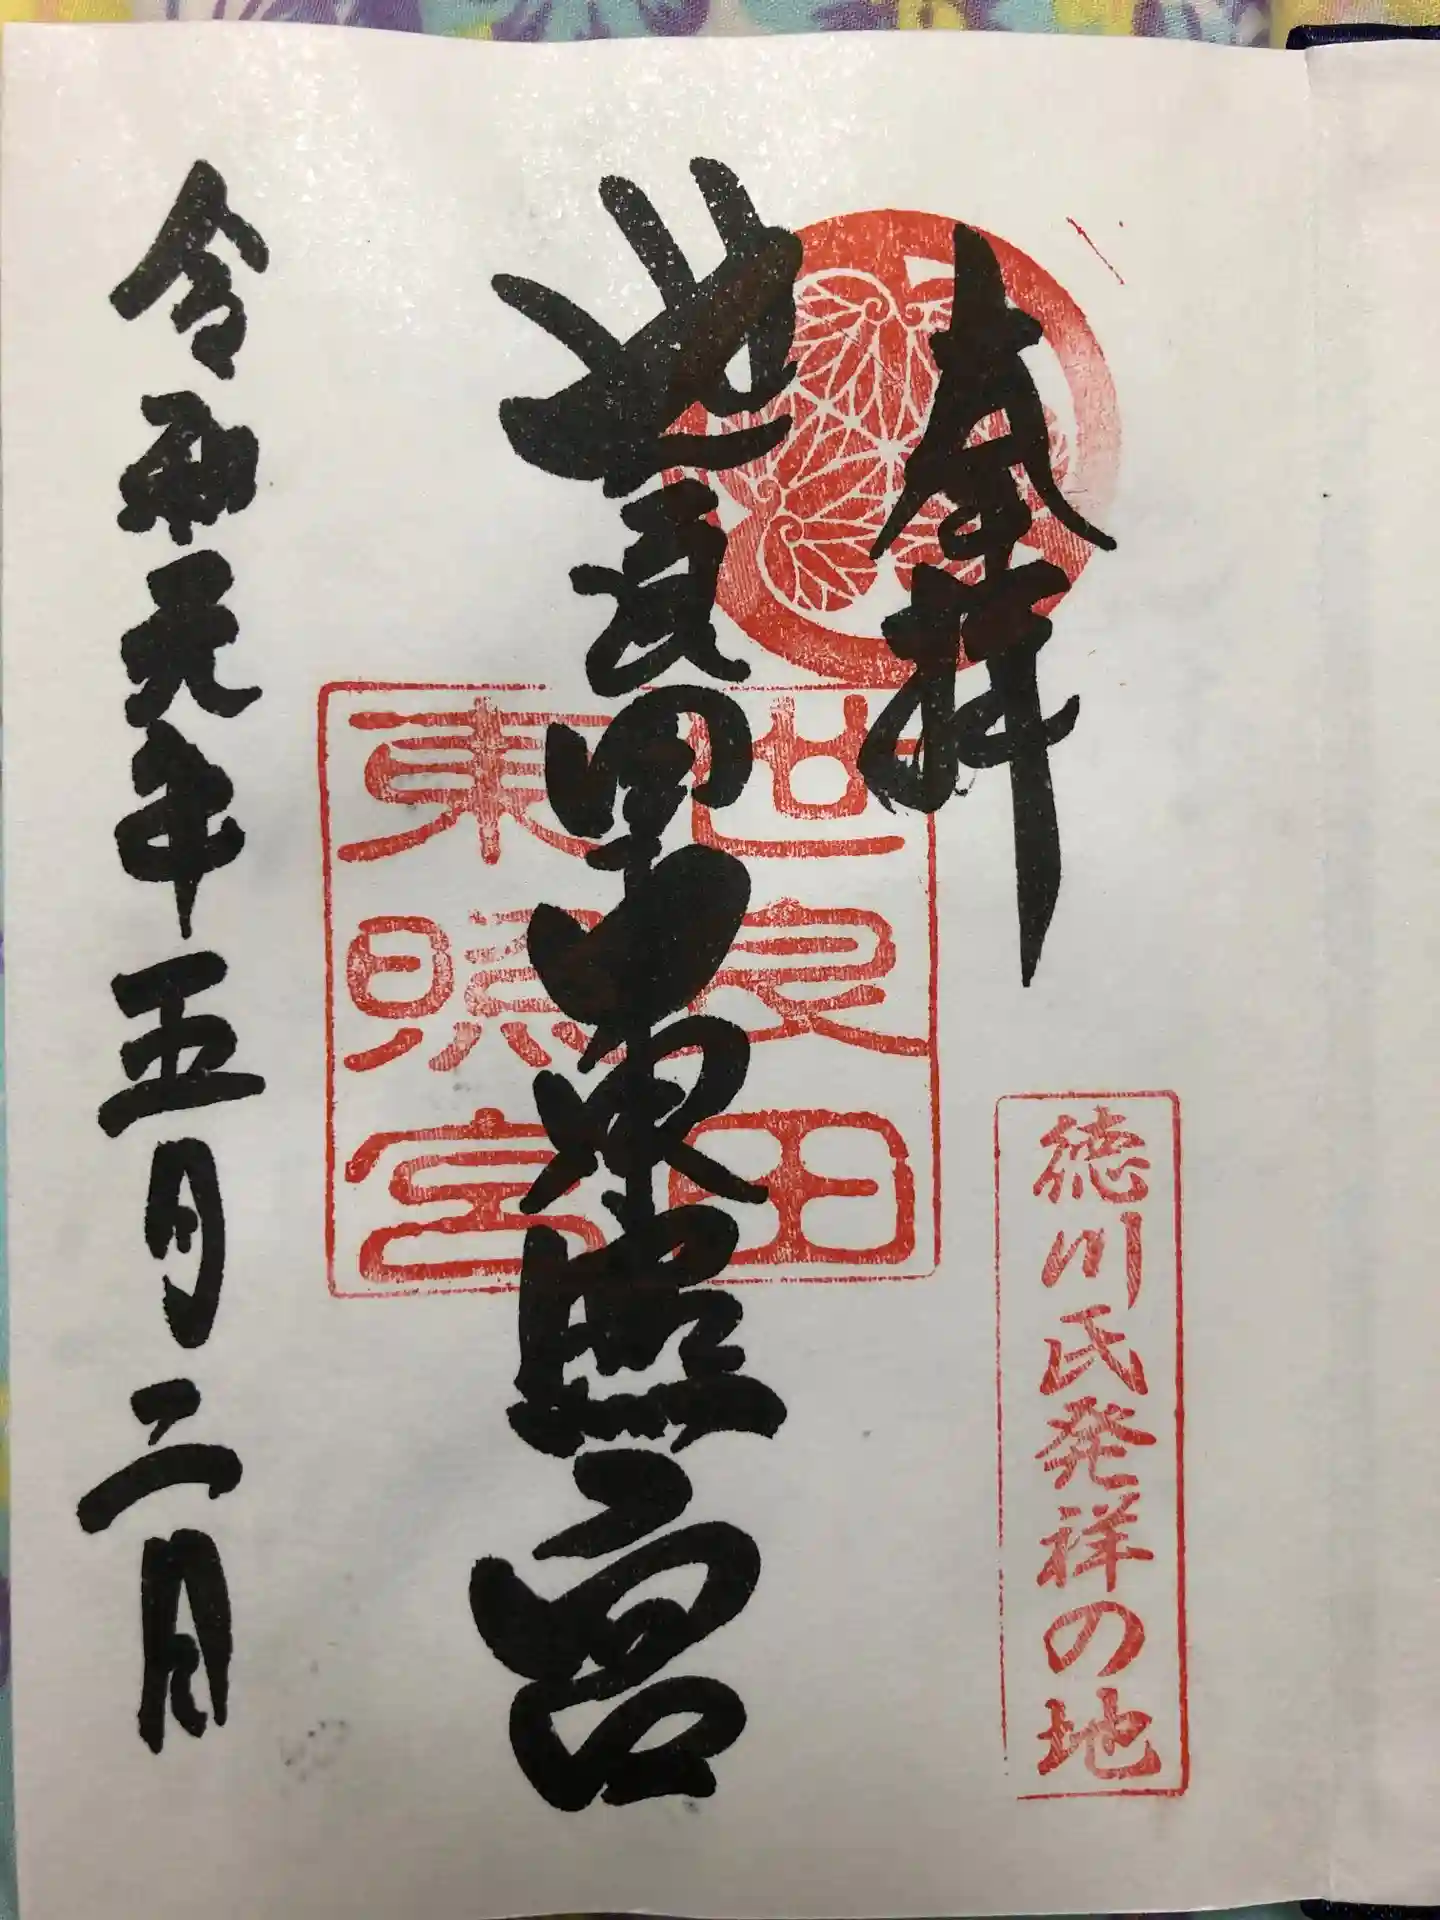 奉拝
徳川氏発祥の地
世良田東照宮
世良田
東照宮
令和元年五月二日